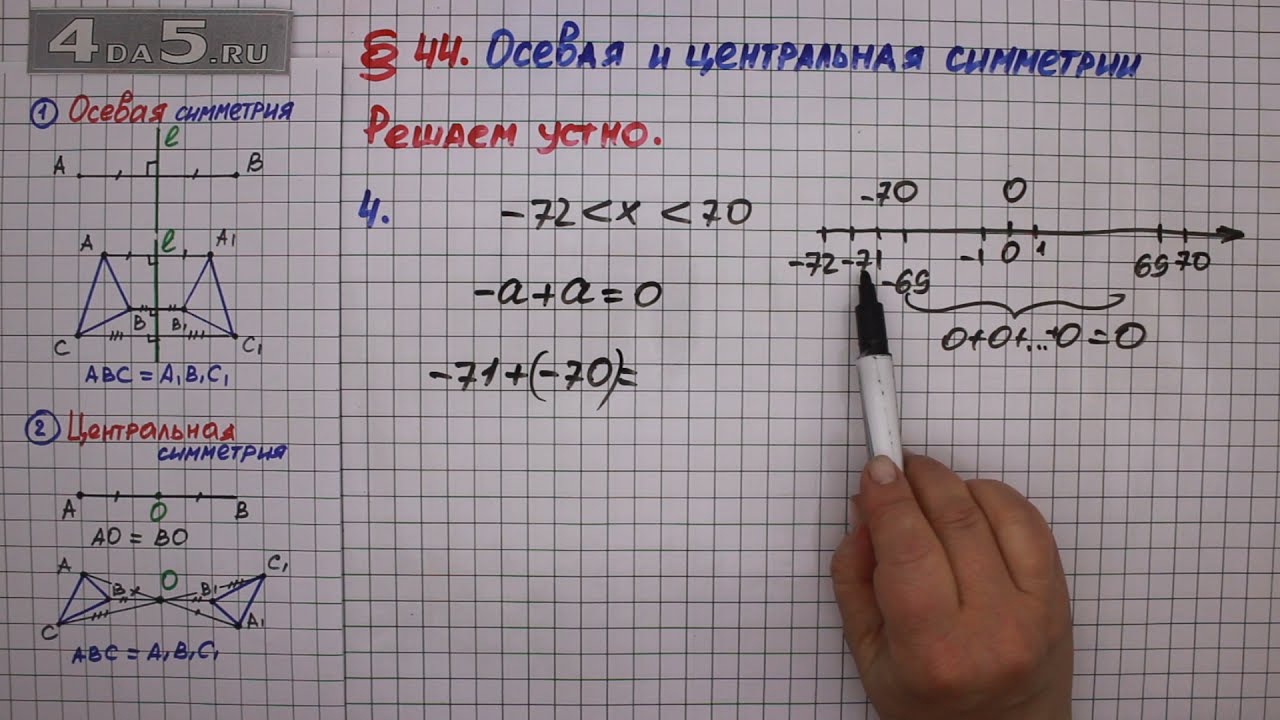 4DA5.RU
① Осевая симметрия
l
A B
l
A A₁
B B₁
C C₁
ABC = A₁B₁C₁
② Центральная
симметрия
A O B
AO = BO
A O C₁
B B₁
C A₁
ABC = A₁B₁C₁
§ 44. Осевая и центральная симметрии
Решаем устно.
4. -72 < x < 70
-a + a = 0
-71 + (-70) =
-70 0
-72 -71 -69 -1 0 1 69 70
0+0+...+0=0